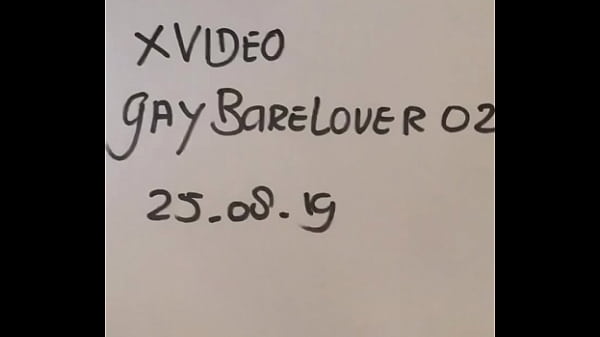 XVIDEO
gAY BARELOVER 02
25.08.19